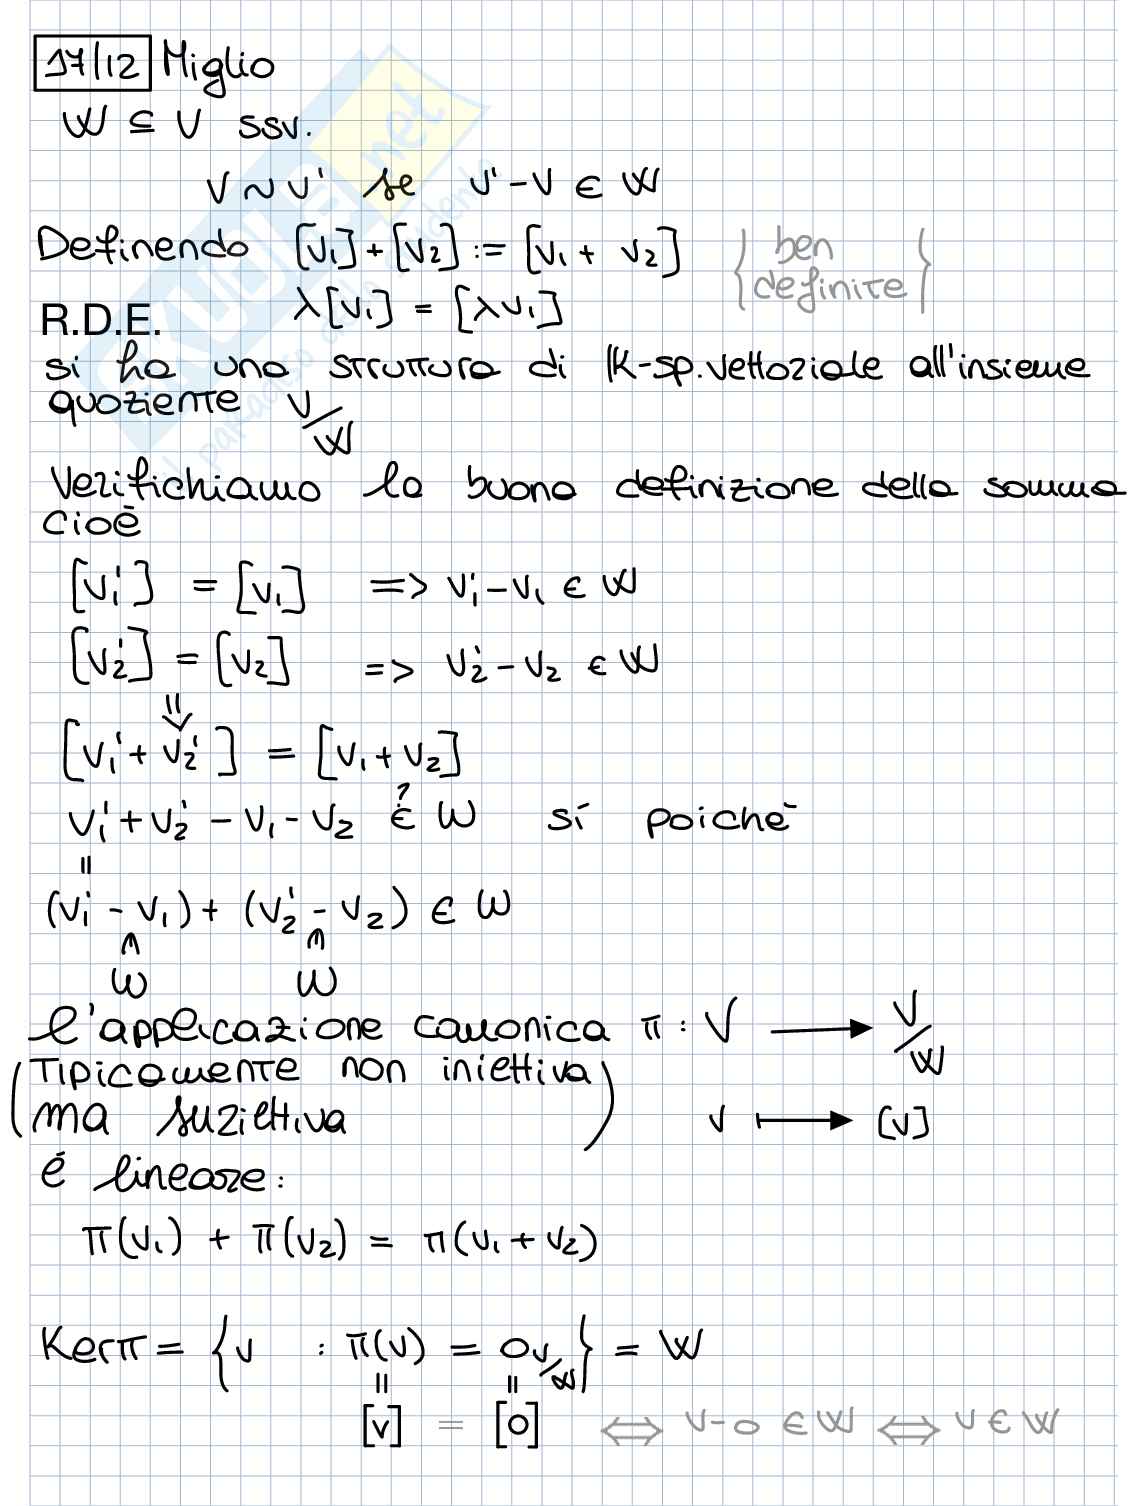 17/12 Miglio
W ⊆ V ssv.
V ~ v' se v' - v ∈ W
Definendo [v₁] + [v₂] := [v₁ + v₂] { ben definite }
R.D.E. λ[v₁] = [λv₁]
si ha una struttura di K-sp. vettoriale all'insieme
quoziente V/W
Verifichiamo la buona definizione della somma
cioè
[v₁'] = [v₁] => v₁' - v₁ ∈ W
[v₂'] = [v₂] => v₂' - v₂ ∈ W
⇓
[v₁' + v₂'] = [v₁ + v₂]
?
v₁' + v₂' - v₁ - v₂ ∈ W sí poichè
=
(v₁' - v₁) + (v₂' - v₂) ∈ W
∈ ∈
W W
l'applicazione canonica π : V → V/W
(Tipicamente non iniettiva
ma suriettiva) v ↦ [v]
é lineare:
π(v₁) + π(v₂) = π(v₁ + v₂)
Kerπ = { v : π(v) = 0 V/W } = W
= =
[v] = [0] ⟺ v - 0 ∈ W ⟺ v ∈ W
SKUOLA.net
il paradiso dello studente